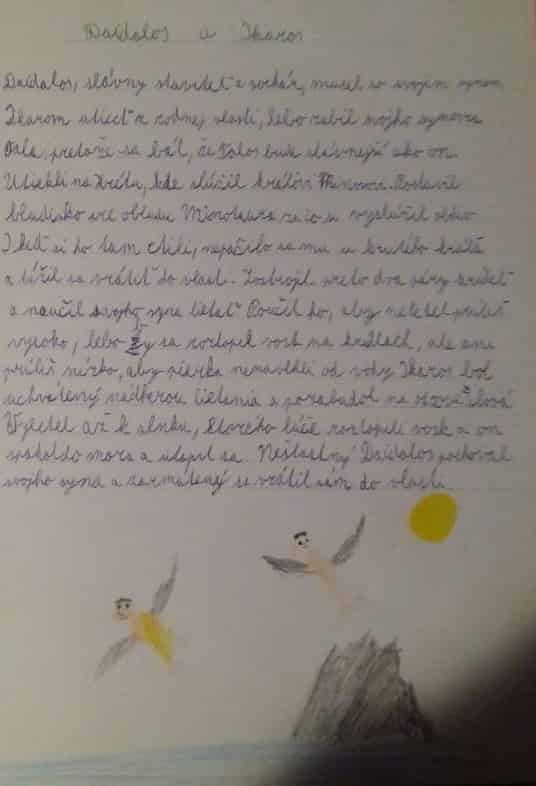 Daidalos a Ikaros
Daidalos, slávny staviteľ a sochár, musel so svojim synom
Ikarom utiecť z rodnej vlasti, lebo zabil svojho synovca
Tala, pretože sa bál, že Talos bude slávnejší ako on.
Utiekli na Krétu, kde slúžil kráľovi Minosovi. Postavil
bludisko pre obludu Minotaura za čo si vyslúžil obdiv
I keď si ho tam ctili, nepáčilo sa mu u krutého kráľa
a túžil sa vrátiť do vlasti. Zostrojil preto dva páry krídel
a naučil svojho syna lietať. Poučil ho, aby neletel príliš
vysoko, lebo by sa roztopil vosk na krídlach, ale ani
príliš nízko, aby pierka nenavlhli od vody Ikaros bol
uchvátený nádherou lietania a pozabudol na otcove slová
Vyletel až k slnku, ktorého lúče roztopili vosk a on
spadol do mora a utopil sa. Nešťastný Daidalos pochoval
svojho syna a zarmútený sa vrátil sám do vlasti.